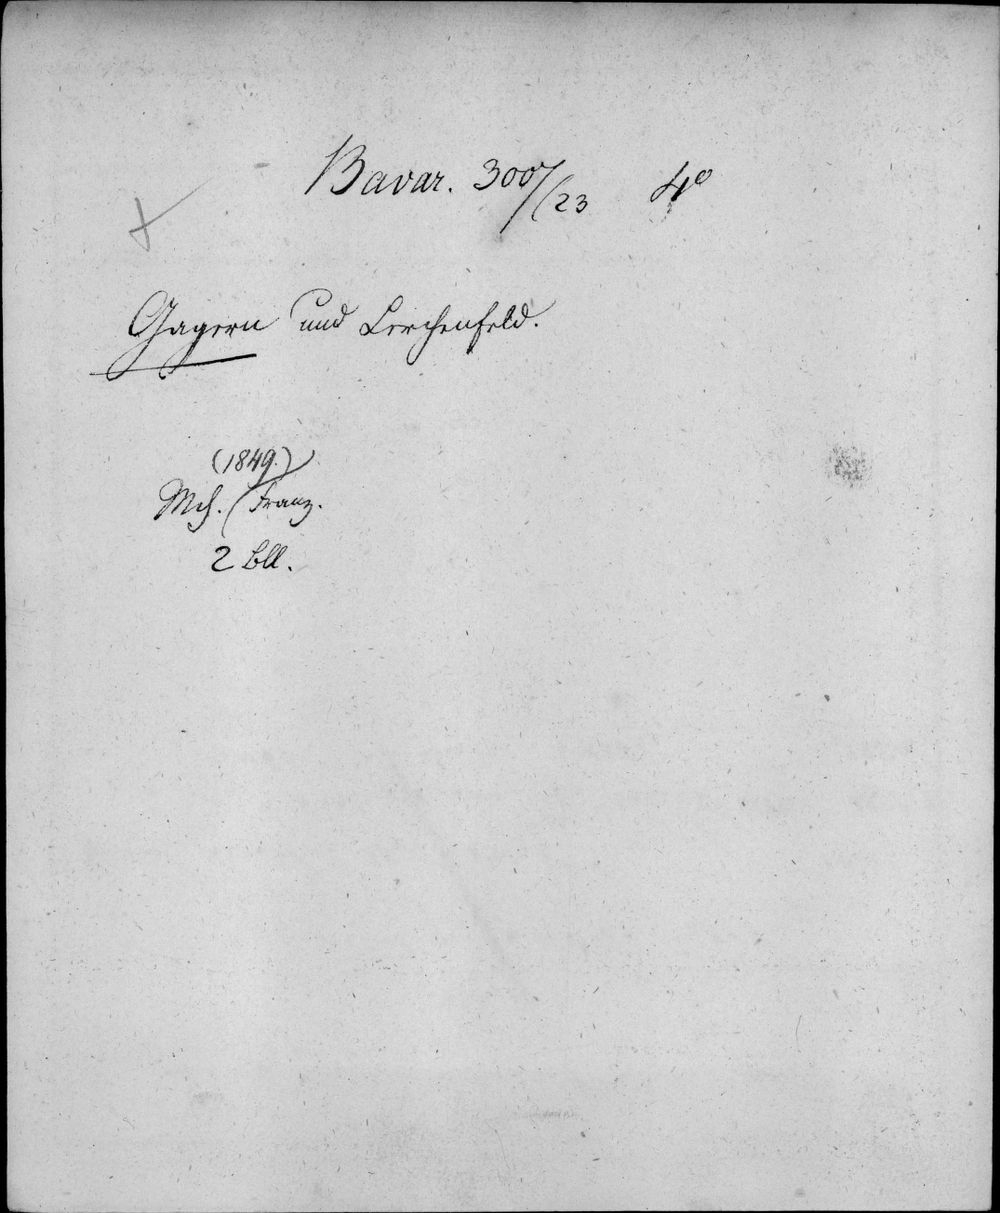 Bavar. 3007/23 4º
Gagern und Lerchenfeld.
(1849.)
Mch. Franz.
2 Bll.